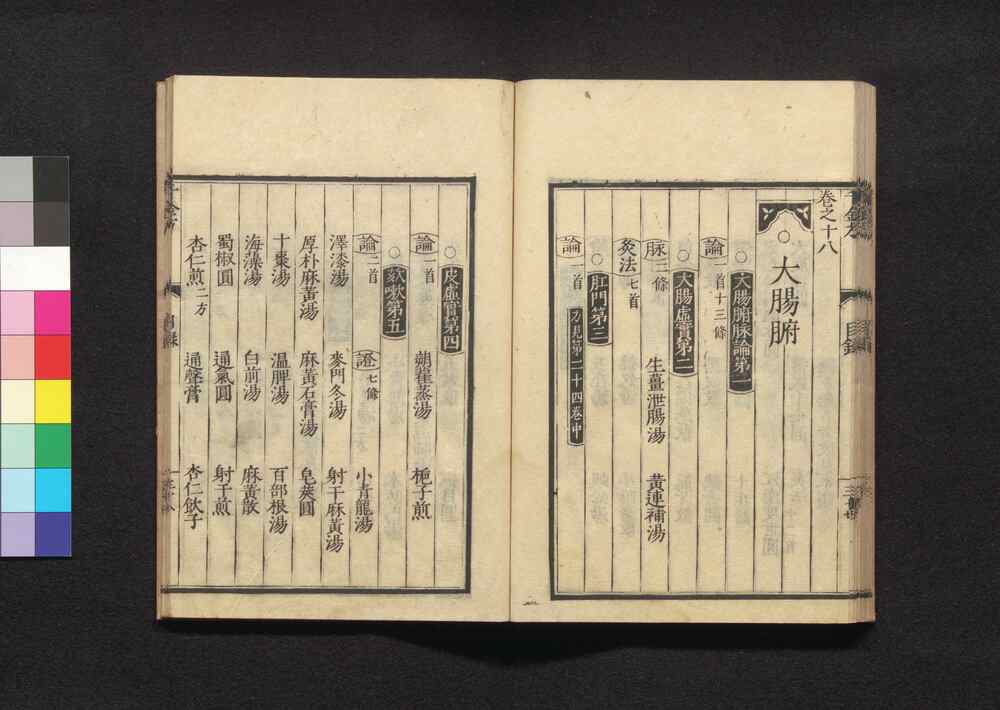 卷之十八
○大腸腑
○大腸腑脉論第一
論二首十三條
○大腸虛實第二
脉三條 生薑泄腸湯 黃連補湯
灸法七首
○肛門第三
論一首 方見第二十四卷中
○皮虛實第四
論一首 蒴藋蒸湯 梔子煎
○欬嗽第五
論二首 證七條 小青龍湯
澤漆湯 麥門冬湯 射干麻黃湯
厚朴麻黃湯 麻黃石膏湯 皂莢圓
十棗湯 溫脾湯 百部根湯
海藻湯 白前湯 麻黃散
蜀椒圓 通氣圓 射干煎
杏仁煎二方 通聲膏 杏仁飲子